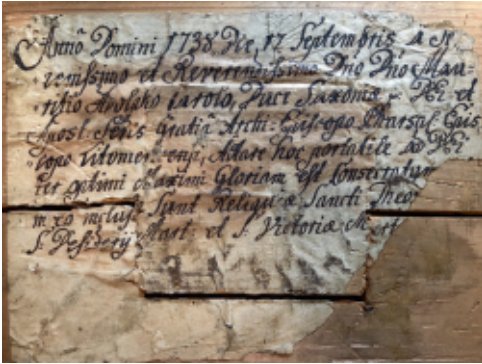 Anno Domini 1738 Die, 17 Septembris a
et Reverendissimo Dno Dno Mau=
ritio Adolpho Carolo, Duci Saxoniæ - DEI et
Apost. Sedis Gratiâ Archi-Episcopo Pharsal. Epis
copo Litomericensi, Altare hoc portatile ad DEI
ter optimi Maximi Gloriam est Consecratum
in eo inclusæ Sunt Reliquiæ Sancti Theo
S. Desiderij Mart. et S. Victoriæ Mart